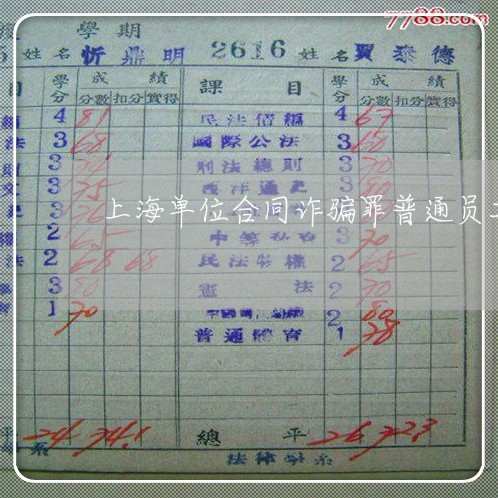 7788.com
學期
5 姓名 忻鼎明 2616 姓名 賈泰德
目 學分 成績 課目 學分 成績
分數 扣分 實得 分數 扣分 實得
4 81 民法債編 4 67
法 3 68 國際公法 3 60
3 刑法總則 3 70
3 75 西洋通史 3 80
上海单位合同诈骗罪普通员
2 65 3 70
法 2 68 68 民法物權 2 65
3 80 憲法 2 70
1 70 2 80
普通體育 1 78
平 24 74.1 總平 26 72.3
系 法律學系